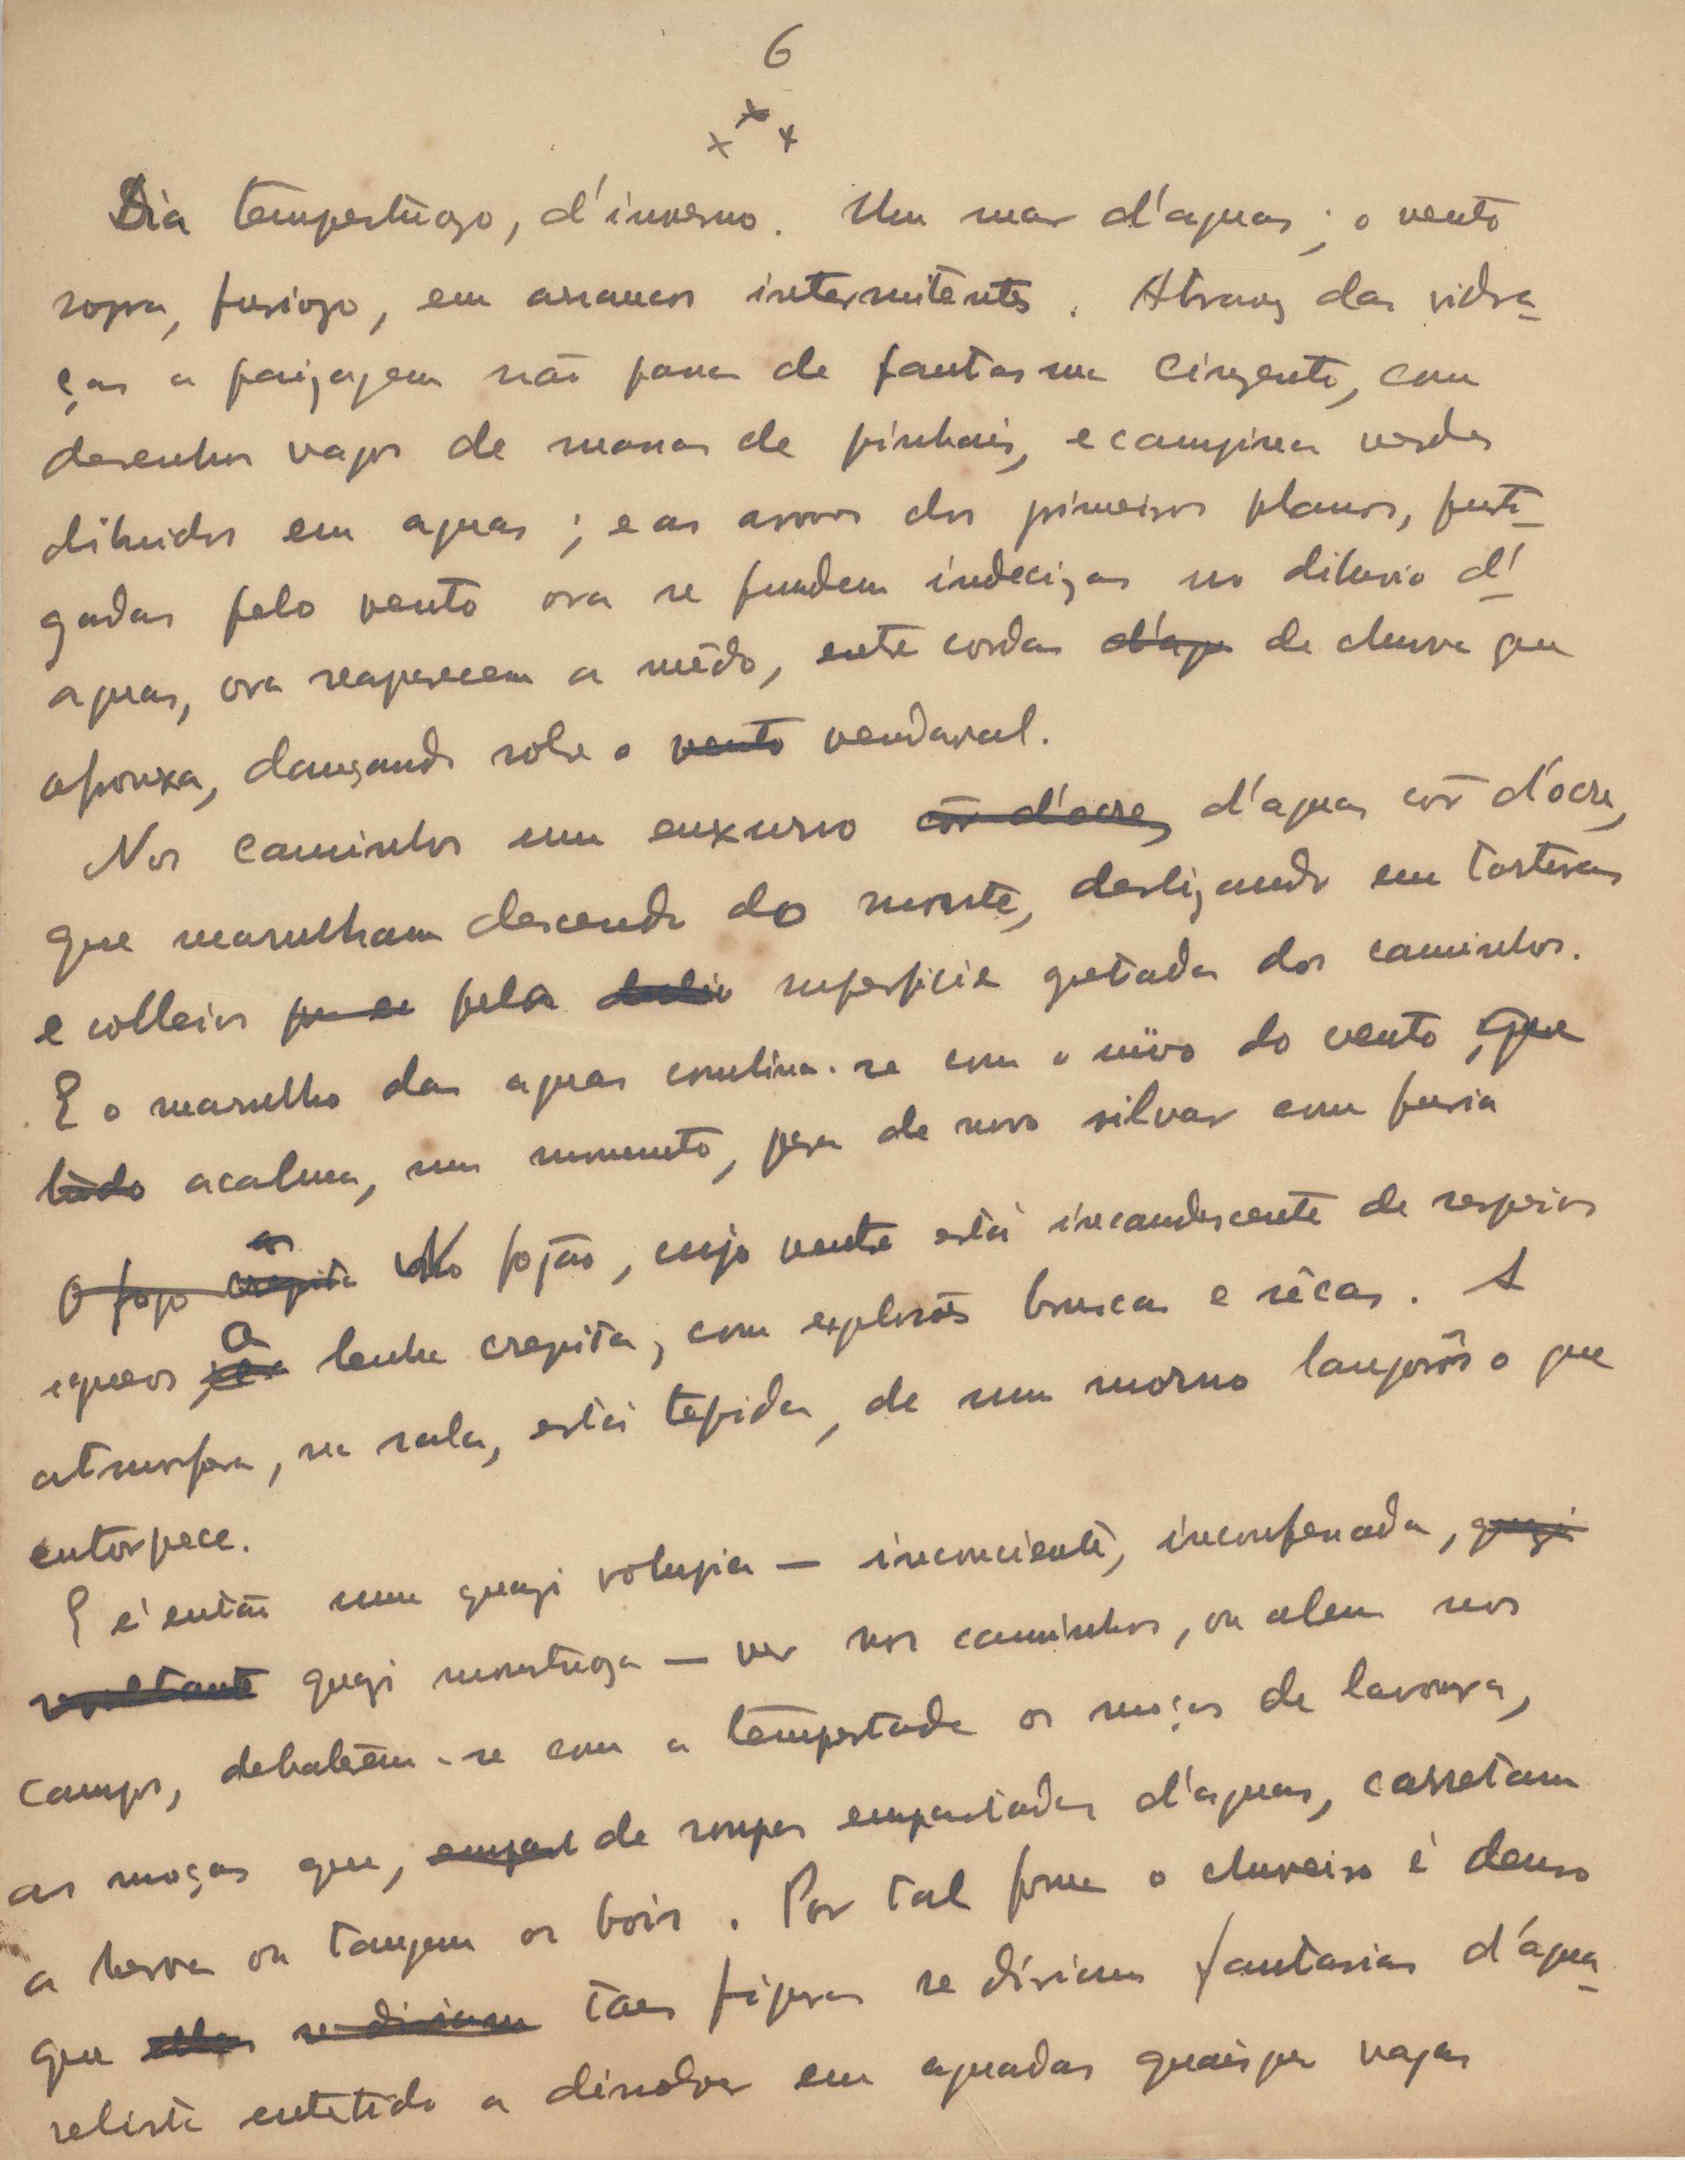 6
x x x
Dia tempestuozo, d'inverno. Um mar d'aguas; o vento
sopra, furiozo, em arrancos intermitentes. Atravez das vidra-
ças a paizagem não passa de fantasma cinzento, com
desenhos vagos de massas de pinhais, e campinas verdes
diluidos em aguas; e as arvores dos primeiros planos, fusti-
gadas pelo vento ora se fundem indecizas no diluvio d'
aguas, ora reaparecem a mêdo, entre cordas d'agu de chuva que
afrouxa, dançando sobre o vento vendaval.
Nos caminhos um enxurro côr d'ocre, d'aguas côr d'ocre,
que marulham descendo do monte, deslizando em
e colleios pela superficie gretada dos caminhos.
E o marulho das aguas combina-se com o uivo do vento, que
tudo acalma, um momento, para de novo silvar com furia
O fogo crepita as No fogão, cujo ventre está incandescente de respiros
a lenha crepita, com explosões bruscas e sêcas. A
atmosfera, na sala, está tepida, de um morno langorôso que
entorpece.
E é então uma quazi volupia — inconciente, inconfessada, quazi
revoltante quazi monstruoza — ver nos caminhos, ou alem nos
campos, debaterem-se com a tempestade os moços de lavoura,
as moças que, de roupas empastadas d'aguas, carretam
a herva ou tangem os bois. Por tal forma o chuveiro é denso
que ellas se diriam taes figuras se diriam fantasias d'agua-
relista entretido a dissolver em aguadas quaisquer vagas